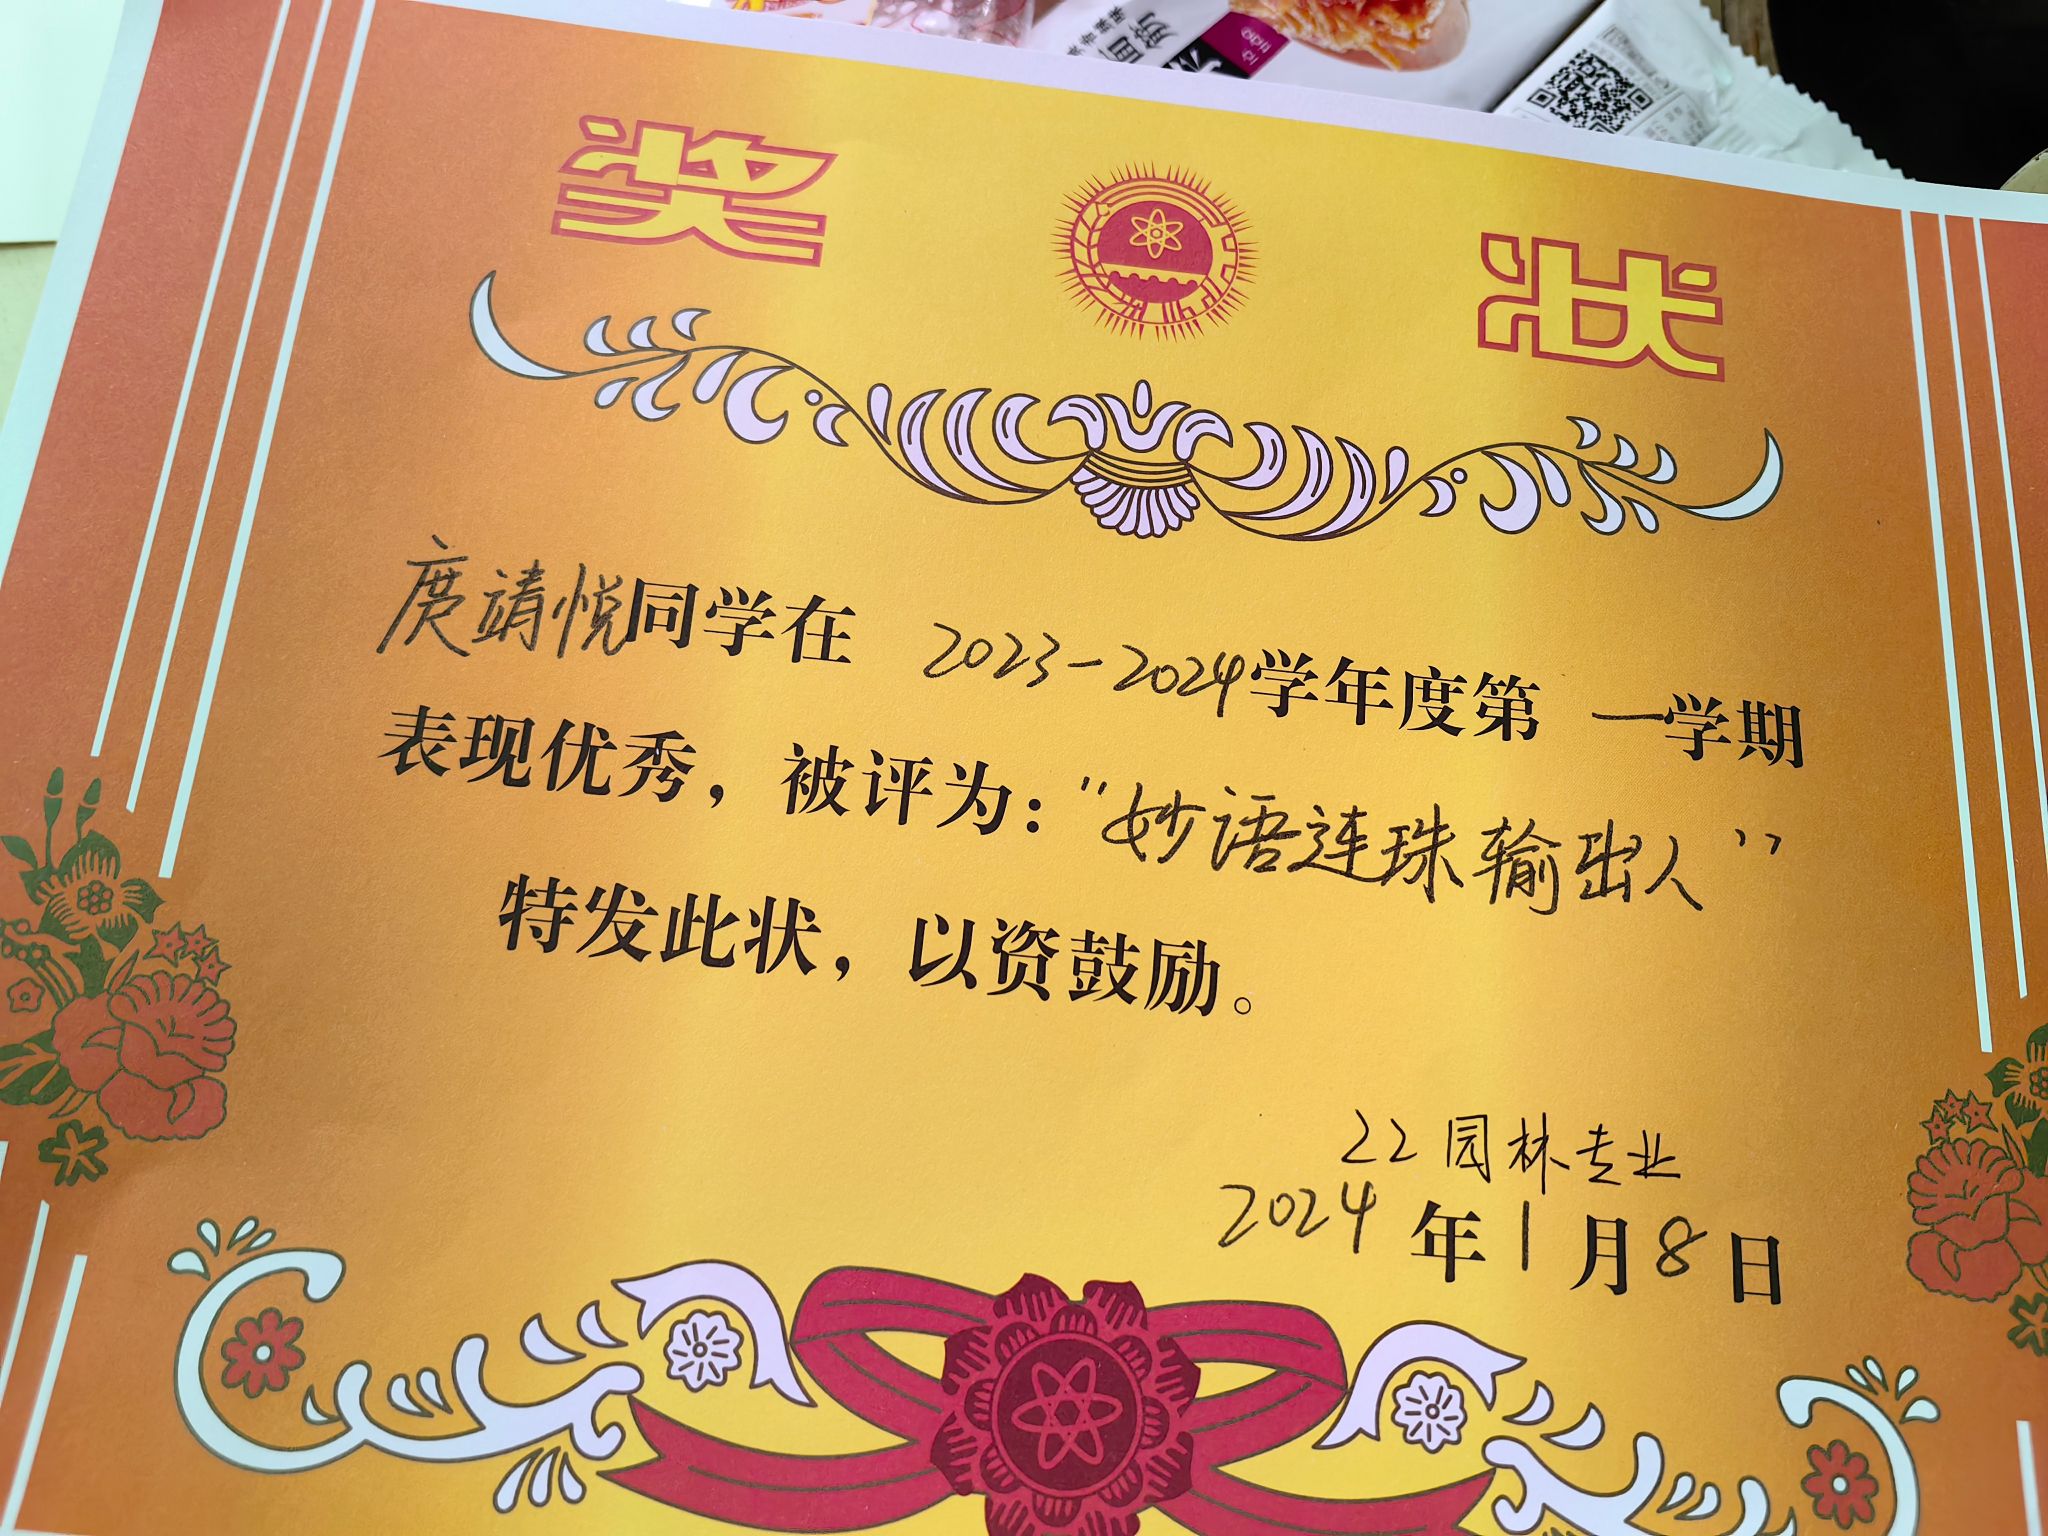 奖状
庹靖悦同学在 2023-2024学年度第 一学期
表现优秀，被评为："妙语连珠输出人"
特发此状，以资鼓励。
22园林专业
2024年1月8日